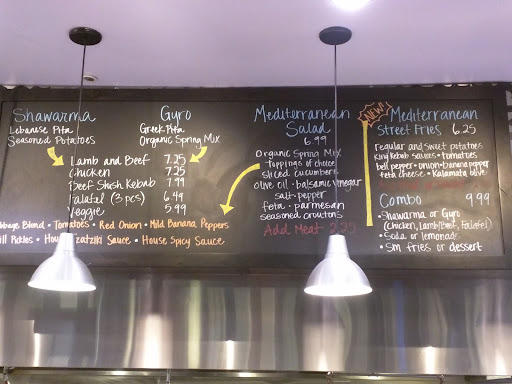 Shawarma
Lebanese Pita
Seasoned Potatoes
Gyro
Greek Pita
Organic Spring Mix
Lamb and Beef 7.25
Chicken 7.25
Beef Shish Kebab 7.99
Falafel (3 pcs) 6.49
Veggie 5.99
Blend • Tomatoes • Red Onion • Mild Banana Peppers
Pickles • Sauce • House Spicy Sauce
Mediterranean
Salad
6.99
Organic Spring Mix
toppings of choice
sliced cucumbers
olive oil • balsamic vinegar
salt • pepper
feta • parmesan
seasoned croutons
Add Meat 2.25
NEW!
Mediterranean
Street Fries 6.25
regular and sweet potatoes
King Kebab sauces • tomatoes
bell pepper • onion • banana pepper
feta cheese • Kalamata olive
Combo 9.99
• Shawarma or Gyro
(Chicken, Lamb/Beef, Falafel)
• Soda or lemonade
• Sm fries or dessert